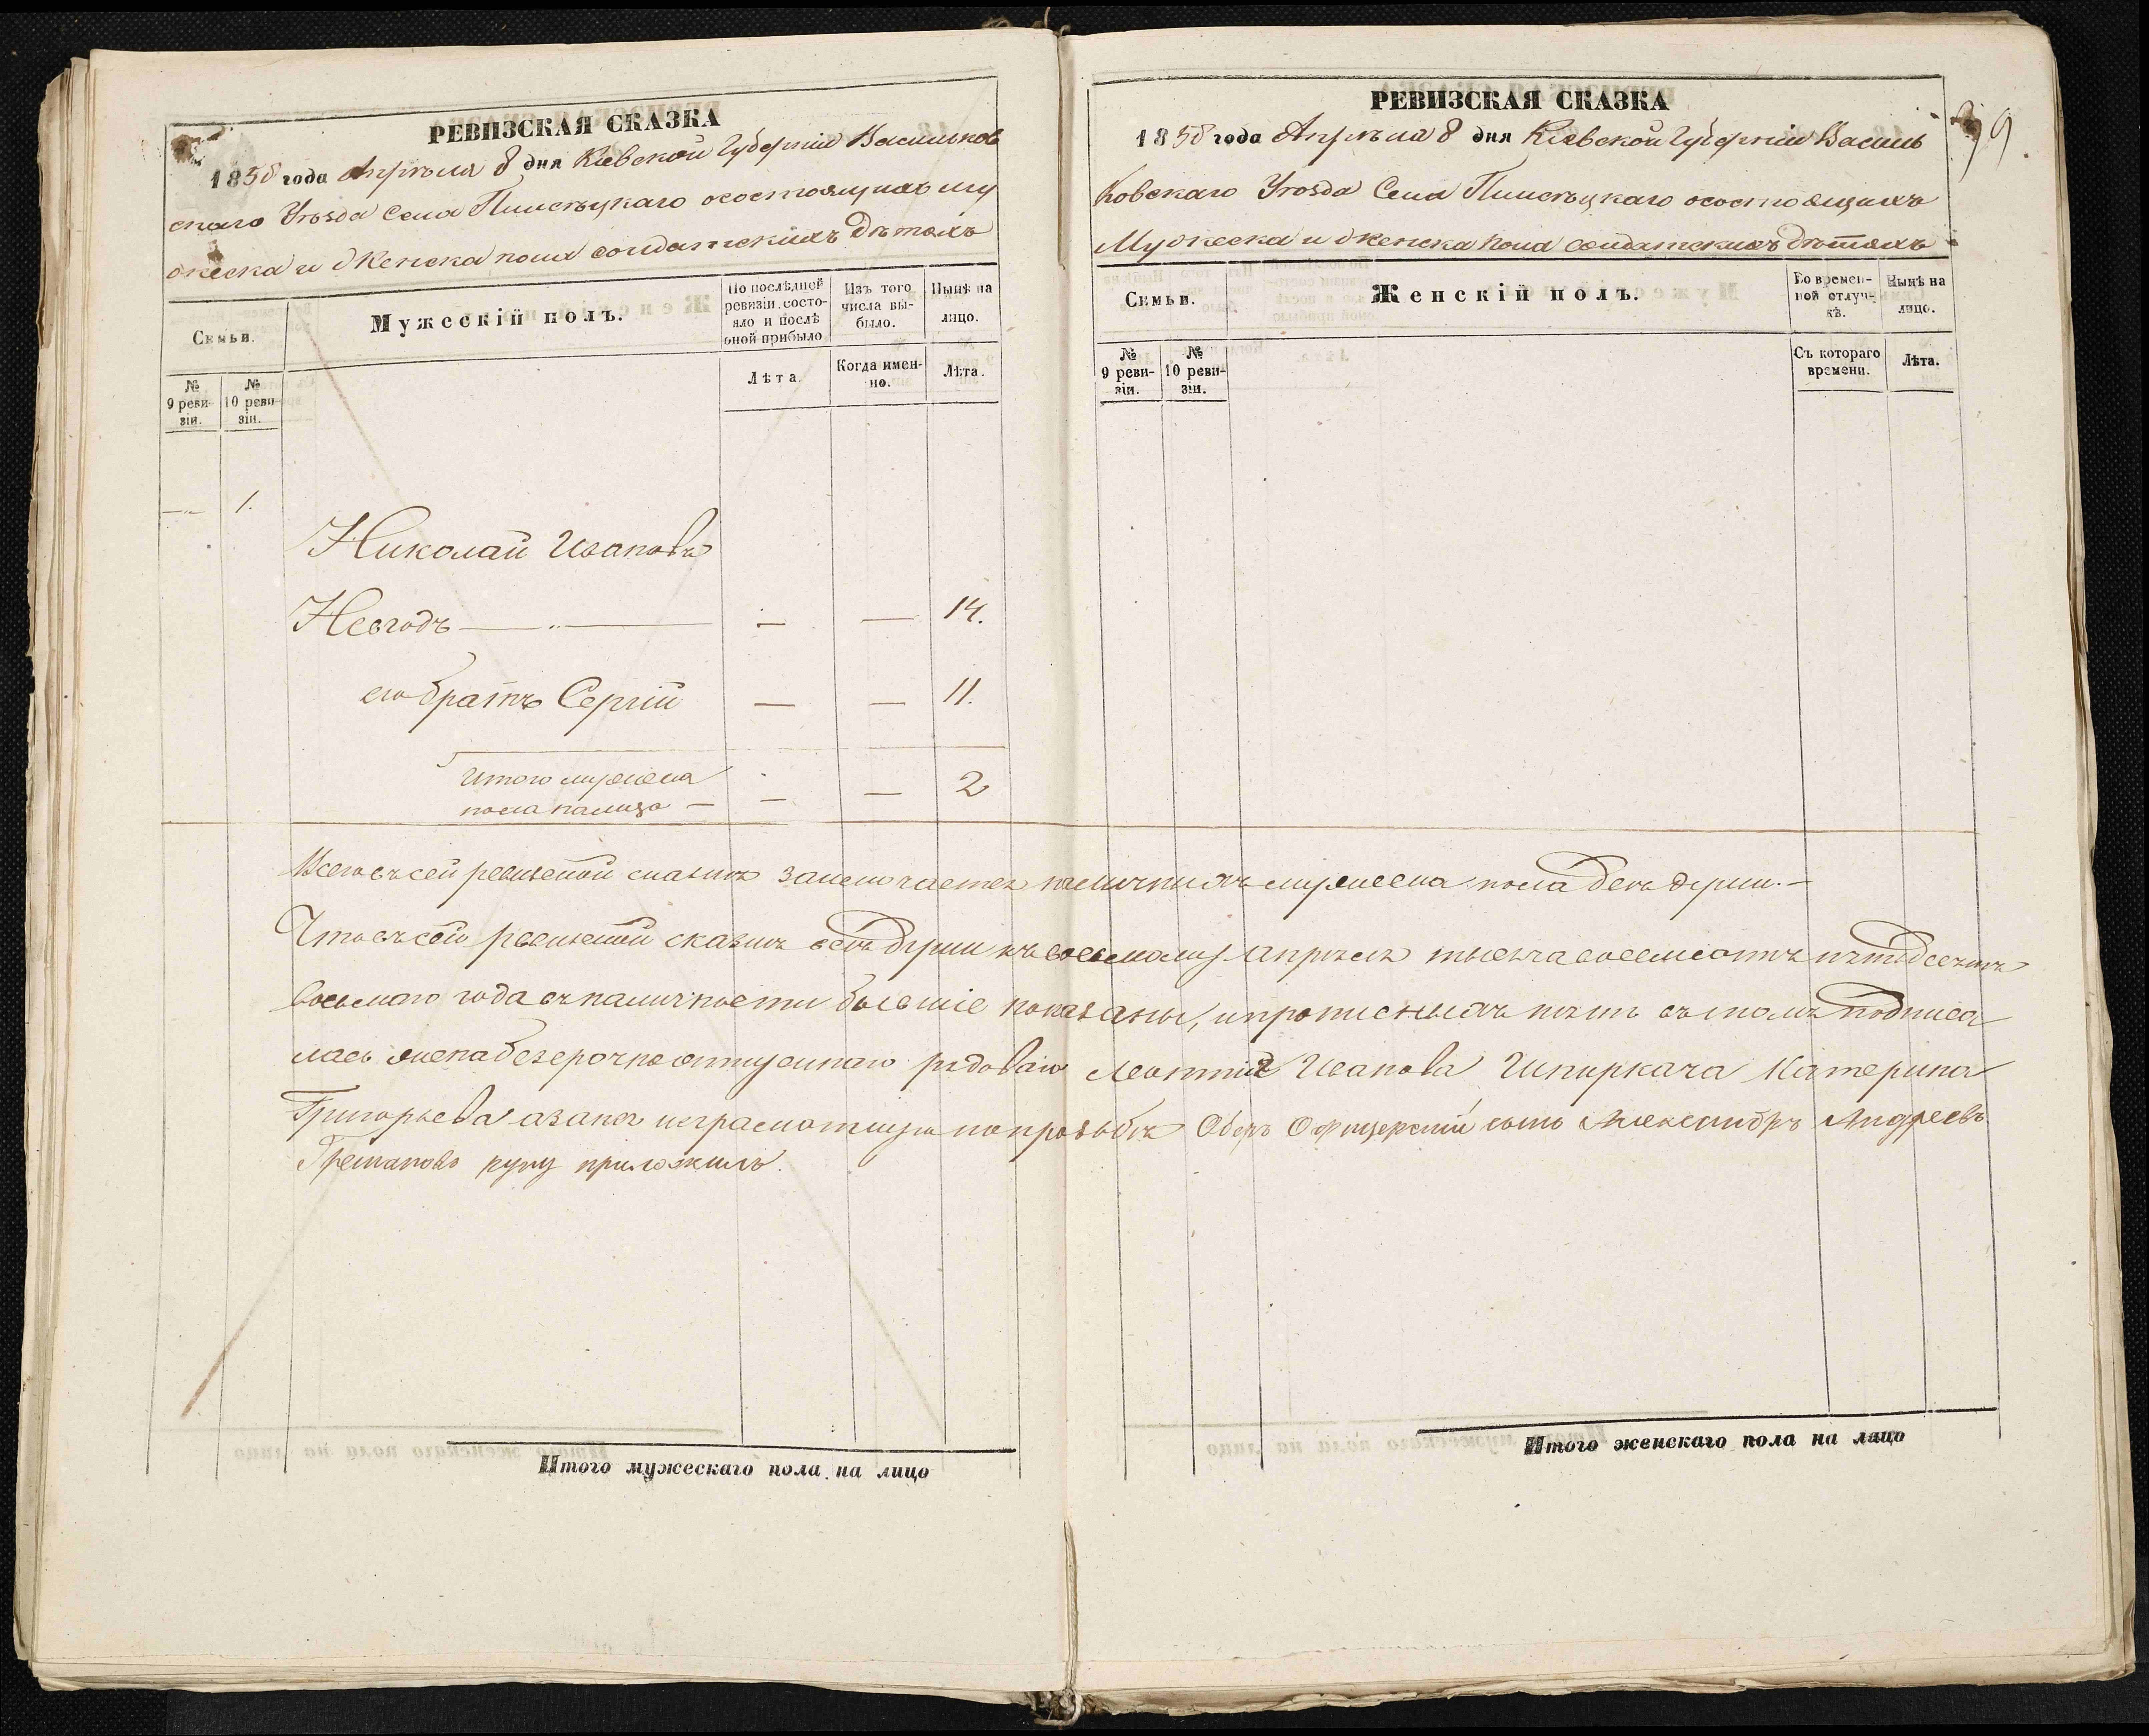 РЕВИЗСКАЯ СКАЗКА
1858 года Апрѣля 8 дня Кіевской Губерніи Васильков
скаго Уѣзда Села Пилиѣцкаго осостоящихъ му
жеска и женска пола солдатскихъ дѣтяхъ
Семьи.
Мужескій полъ.
По послѣдней ревизіи состояло и послѣ оной прибыло
Изъ того числа выбыло.
Нынѣ на лицо.
№ 9 ревизіи.
№ 10 ревизіи.
Лѣта.
Когда именно.
Лѣта.
1.
Николай Ивановъ
14.
его братъ Сергій — — 11.
Итого мужеска
пола налицо — — — 2
Итого мужескаго пола на лицо
РЕВИЗСКАЯ СКАЗКА
1858 года Апрѣля 8 дня Кіевской Губерніи Василь
ковскаго Уѣзда Села осостоящихъ
Мужеска и женска пола солдатскихъ дѣтяхъ
Семьи.
Женскій полъ.
Во временной отлучкѣ.
Нынѣ на лицо.
№ 9 ревизіи.
№ 10 ревизіи.
Съ котораго времени.
Лѣта.
Всего въ сей ревизской сказкѣ заключается наличныхъ мужеска пола двѣ души. —
Что въ сей ревизской сказкѣ всѣ души къ восьмому Апрѣля тысяча восемсотъ пятдесятъ
восьмого года въ наличности бывшіе показаны, и прописныхъ нѣтъ въ томъ подписа
лась жена безсрочноотпускнаго рядоваго Леонтія Иванова Катерина
Григорьева а за нея неграмотную по прозьбѣ Оберъ Офицерскій сынъ Александръ Андреевъ
руку приложилъ.
Итого женскаго пола на лицо